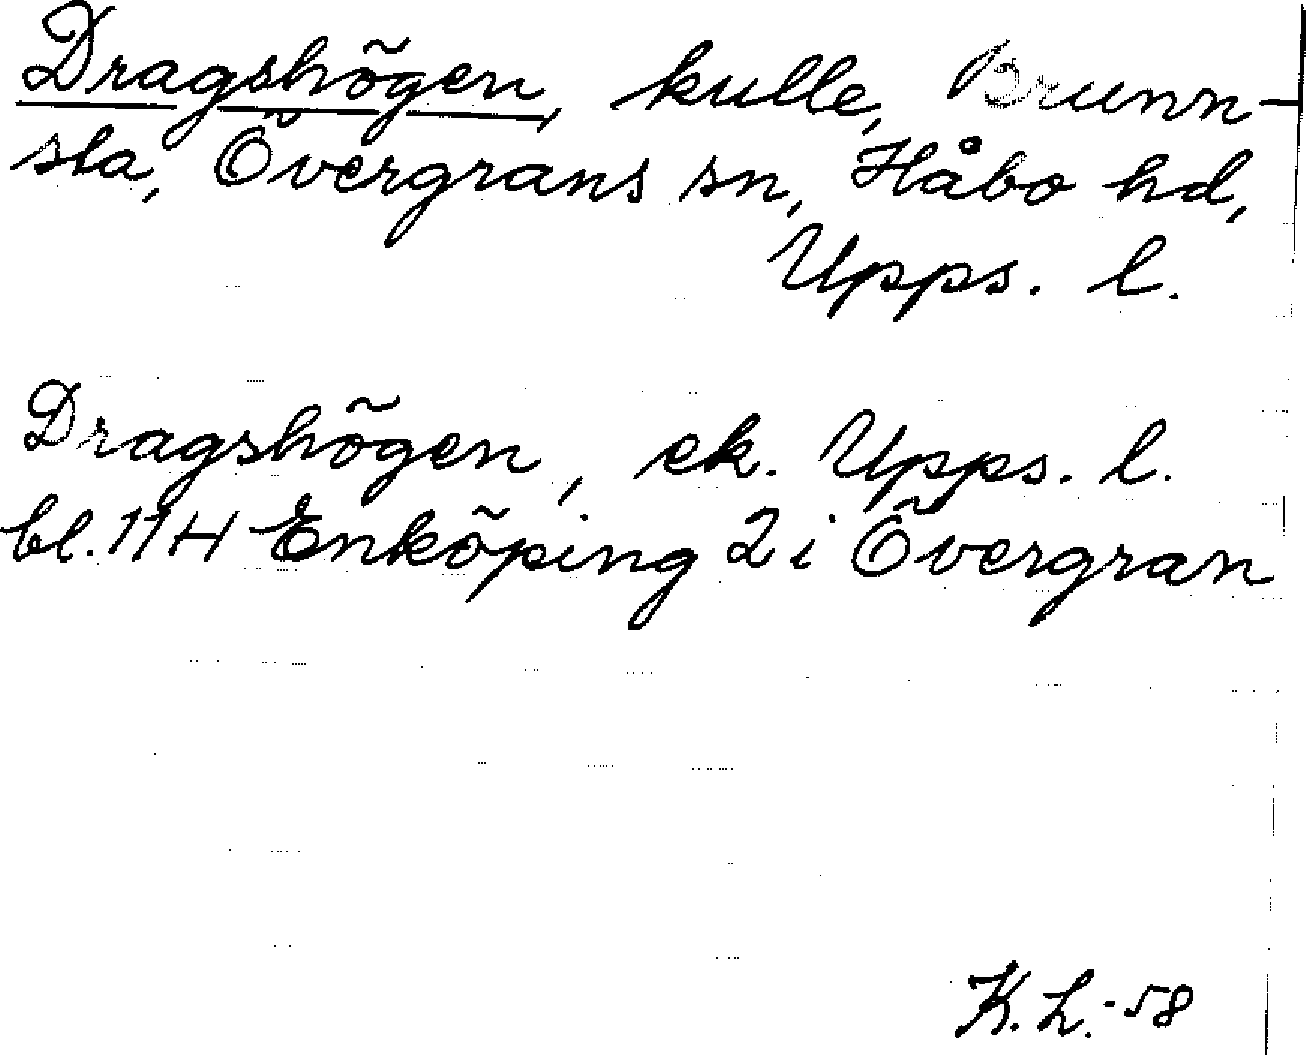 Dragshögen, kulle, Brunn-
sta, Övergrans sn, Håbo hd,
Upps. l.
Dragshögen, ek. Upps. l.
bl. 11H Enköping 2i Övergran
K. L. -58